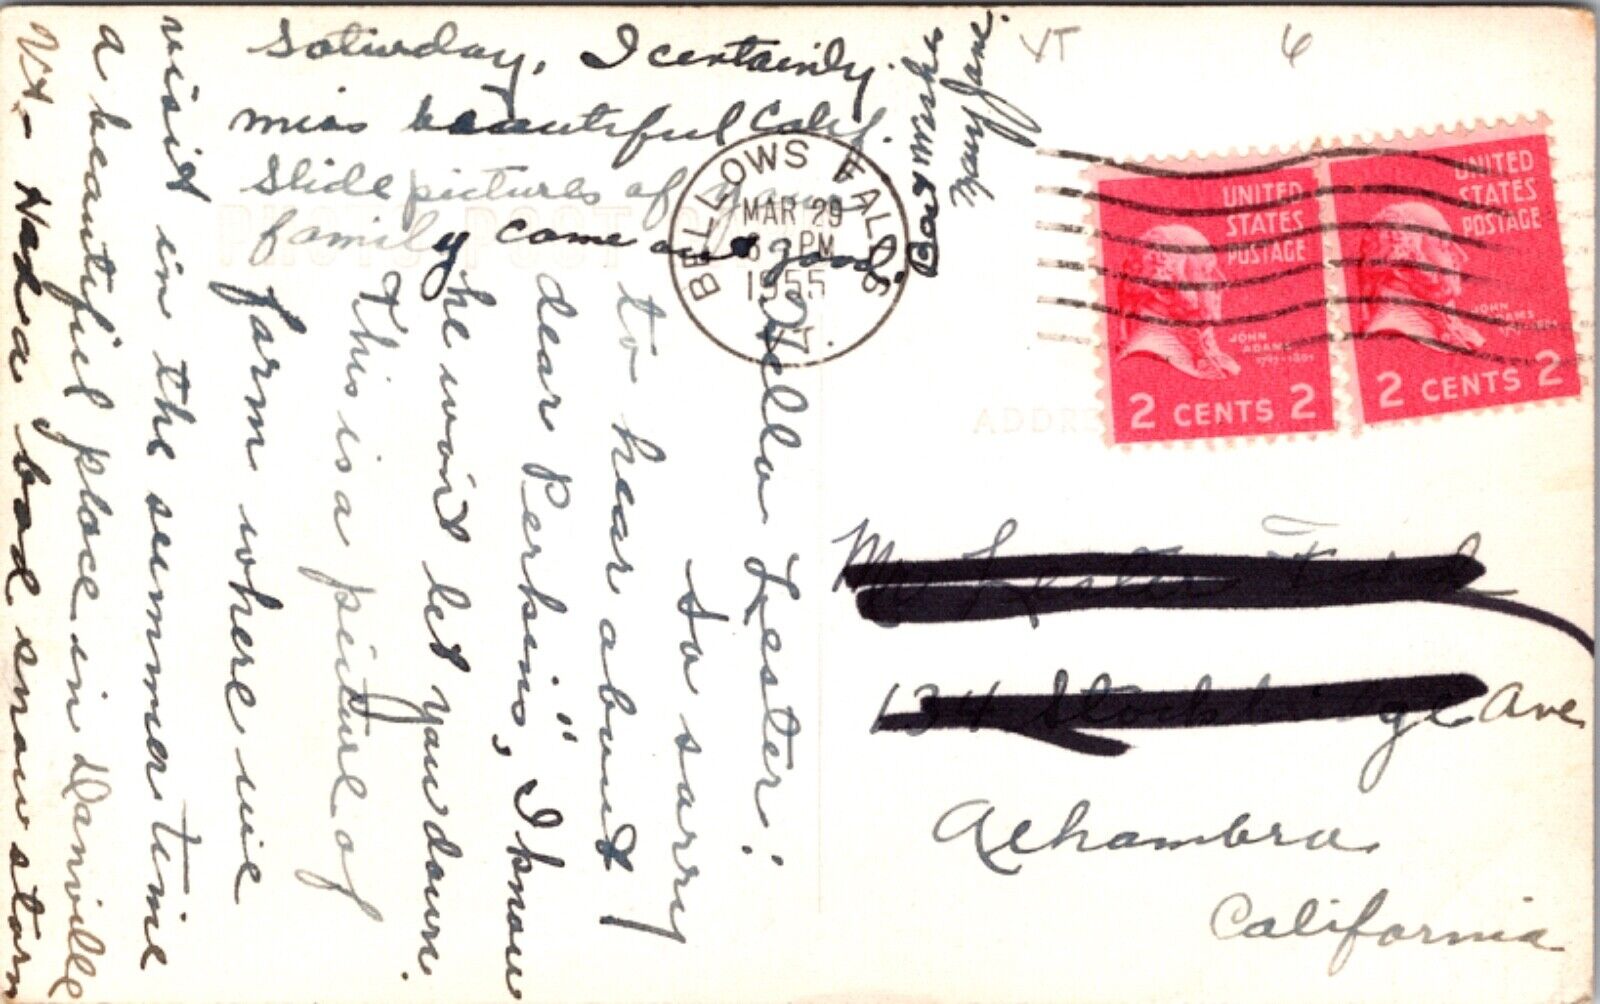 Hello Lester!
So sorry
to hear about
dear "Perkins", I know
he won't let you down.
This is a picture of
farm where we
visit in the summer time
a beautiful place in Danville
Vt- Had a bad snow storm
Saturday. I certainly
miss beautiful Calif.
Slide pictures of your
family came out good.
Best Wishes
Mary Jane.
VT
6
BELLOWS FALLS
MAR 29
PM
1955
VT.
UNITED
STATES
POSTAGE
JOHN
ADAMS
1797-1801
2 CENTS 2
UNITED
STATES
POSTAGE
JOHN
ADAMS
1797-1801
2 CENTS 2
PHOTO POST
ADDRE
Mr Lester
134 Stockbridge Ave
Alhambra
California